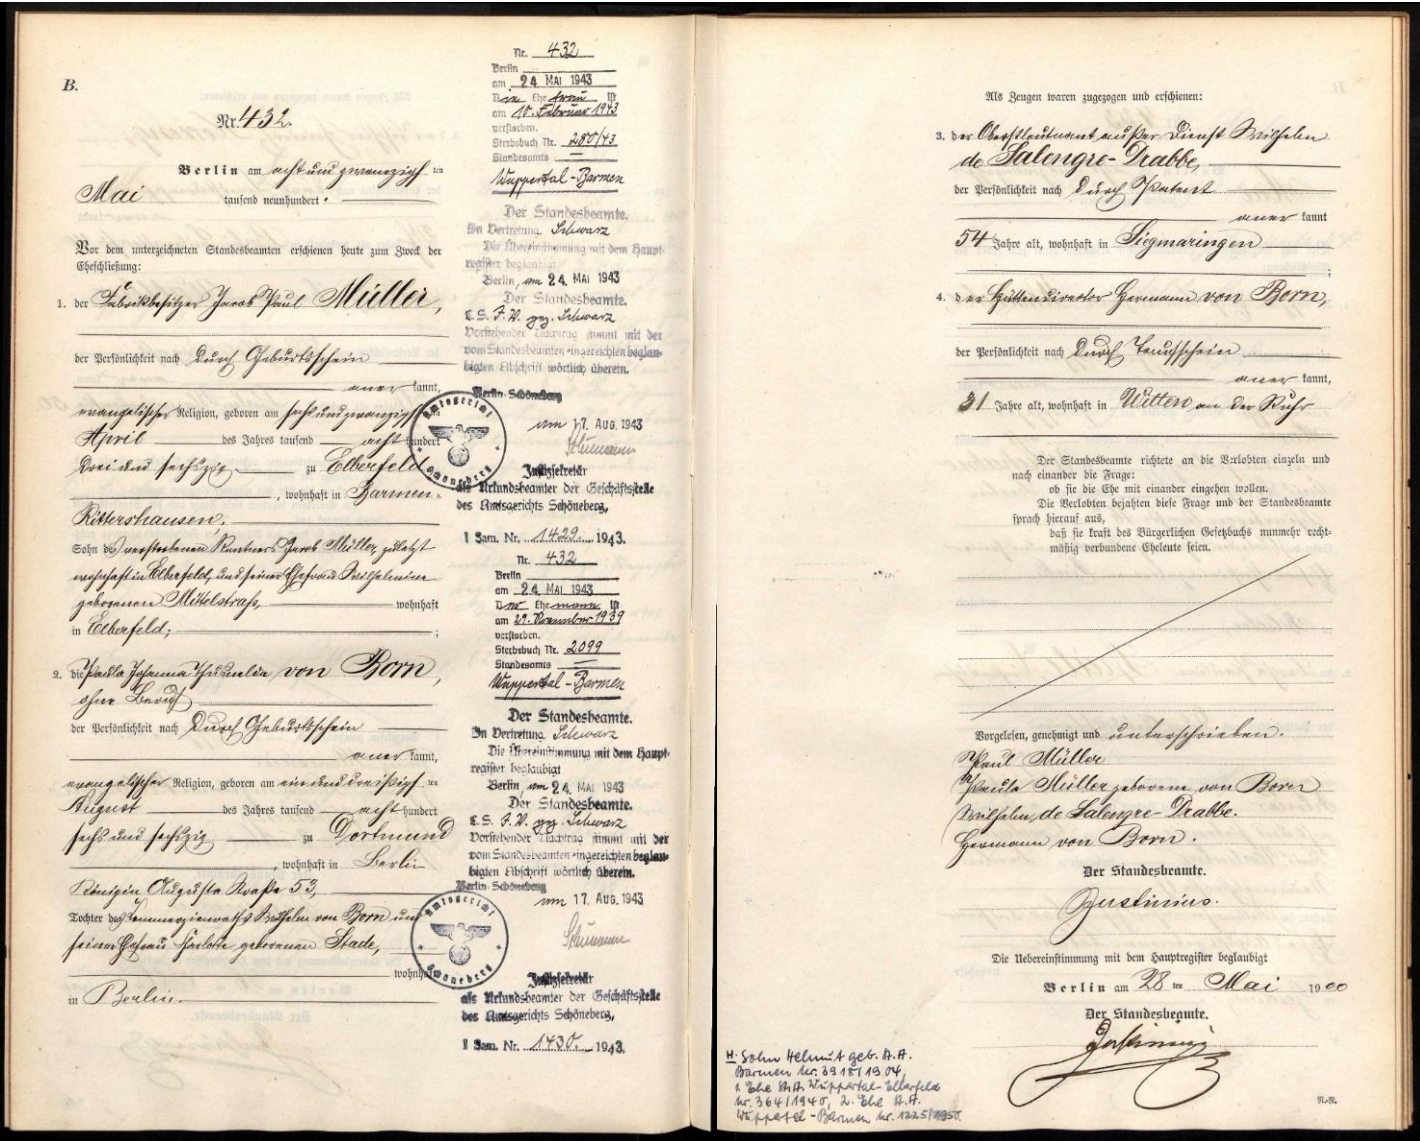 B.
Nr. 432.
Berlin am acht und zwanzigsten
Mai tausend neunhundert.
Vor dem unterzeichneten Standesbeamten erschienen heute zum Zweck der
Eheschließung:
1. der Fabrikbesitzer Jacob Paul Müller,
der Persönlichkeit nach durch Geburtsschein
anerkannt,
evangelischer Religion, geboren am sechs und zwanzigsten
April des Jahres tausend acht hundert
drei und sechszig zu Elberfeld
, wohnhaft in Barmen-
Rittershausen,
Sohn des verstorbenen Rentners Jacob Müller, zuletzt
wohnhaft in Elberfeld, und seiner Ehefrau Wilhelmine
geborenen Mittelstraß, wohnhaft
in Elberfeld;
2. die Paula Johanna Thusnelda von Born,
ohne Beruf
der Persönlichkeit nach durch Geburtsschein
anerkannt,
evangelischer Religion, geboren am ein und dreißigsten
August des Jahres tausend acht hundert
sechs und sechszig zu Dortmund
, wohnhaft in Berlin
Königin Augusta Straße 53,
Tochter des Kommerzienraths Wilhelm von Born und
seiner Ehefrau Charlotte geborenen Stade,
wohnhaft
in Berlin.
Nr. 432
Berlin
am 24. MAI 1943
Die Ehefrau ist
am 10. Februar 1943
verstorben.
Sterbebuch Nr. 280/43
Standesamts
Wuppertal-Barmen
Der Standesbeamte.
In Vertretung Schwarz
Die Übereinstimmung mit dem Haupt-
register beglaubigt
Berlin, am 24. MAI 1943
Der Standesbeamte.
L.S. I.V. gez. Schwarz
Vorstehender Nachtrag stimmt mit der
vom Standesbeamten eingereichten beglau-
bigten Abschrift wörtlich überein.
Berlin-Schöneberg
am 17. AUG. 1943
Amtsgericht
Schöneberg
Justizsekretär
als Urkundsbeamter der Geschäftsstelle
des Amtsgerichts Schöneberg,
1 Sam. Nr. 1429. 1943.
Nr. 432
Berlin
am 24. MAI 1943
Der Ehemann ist
am 29. November 1939
verstorben.
Sterbebuch Nr. 2099
Standesamts
Wuppertal-Barmen
Der Standesbeamte.
In Vertretung Schwarz
Die Übereinstimmung mit dem Haupt-
register beglaubigt
Berlin, am 24. MAI 1943
Der Standesbeamte.
L.S. I.V. gez. Schwarz
Vorstehender Nachtrag stimmt mit der
vom Standesbeamten eingereichten beglau-
bigten Abschrift wörtlich überein.
Berlin-Schöneberg
am 17. AUG. 1943
Amtsgericht
Schöneberg
Justizsekretär
als Urkundsbeamter der Geschäftsstelle
des Amtsgerichts Schöneberg,
1 Sam. Nr. 1430. 1943.
Als Zeugen waren zugezogen und erschienen:
3. der Oberstleutnant außer Dienst Wilhelm
de Salengre-Drabbe,
der Persönlichkeit nach durch Patent
anerkannt
54 Jahre alt, wohnhaft in Siegmaringen
;
4. der Hüttendirector Hermann von Born,
der Persönlichkeit nach durch Taufschein
anerkannt,
31 Jahre alt, wohnhaft in Witten an der Ruhr
Der Standesbeamte richtete an die Verlobten einzeln und
nach einander die Frage:
ob sie die Ehe mit einander eingehen wollen.
Die Verlobten bejahten diese Frage und der Standesbeamte
sprach hierauf aus,
daß sie kraft des Bürgerlichen Gesetzbuchs nunmehr recht-
mäßig verbundene Eheleute seien.
Vorgelesen, genehmigt und unterschrieben.
Paul Müller
Paula Müller geborene von Born
Wilhelm de Salengre-Drabbe.
Hermann von Born.
Der Standesbeamte.
Justinius.
Die Uebereinstimmung mit dem Hauptregister beglaubigt
Berlin am 28 ten Mai 1900
Der Standesbeamte.
Justinius
H. Sohn Helmut geb. St.A.
Barmen Nr. 3918/1904,
1. Ehe St.A. Wuppertal-Elberfeld
Nr. 364/1940, 2. Ehe St.A.
Wuppertal-Barmen Nr. 1225/1950.